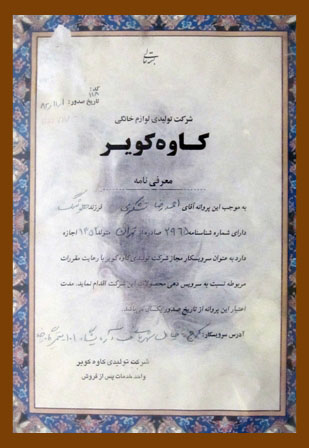 بسمه تعالی
تاریخ صدور:
شرکت تولیدی لوازم خانگی
کاوه کویر
معرفی نامه
به موجب این پروانه آقای احمدرضا فرزند آقای
دارای شماره شناسنامه ۲۹۶۵ صادره از تهران متولد ۱۳۵۱ اجازه
دارد به عنوان سرویسکار مجاز شرکت تولیدی کاوه کویر با رعایت مقررات
مربوطه نسبت به سرویس دهی محصولات این شرکت اقدام نماید. مدت
اعتبار این پروانه از تاریخ صدور یکسال میباشد.
آدرس سرویسکار:
شرکت تولیدی کاوه کویر
واحد خدمات پس از فروش